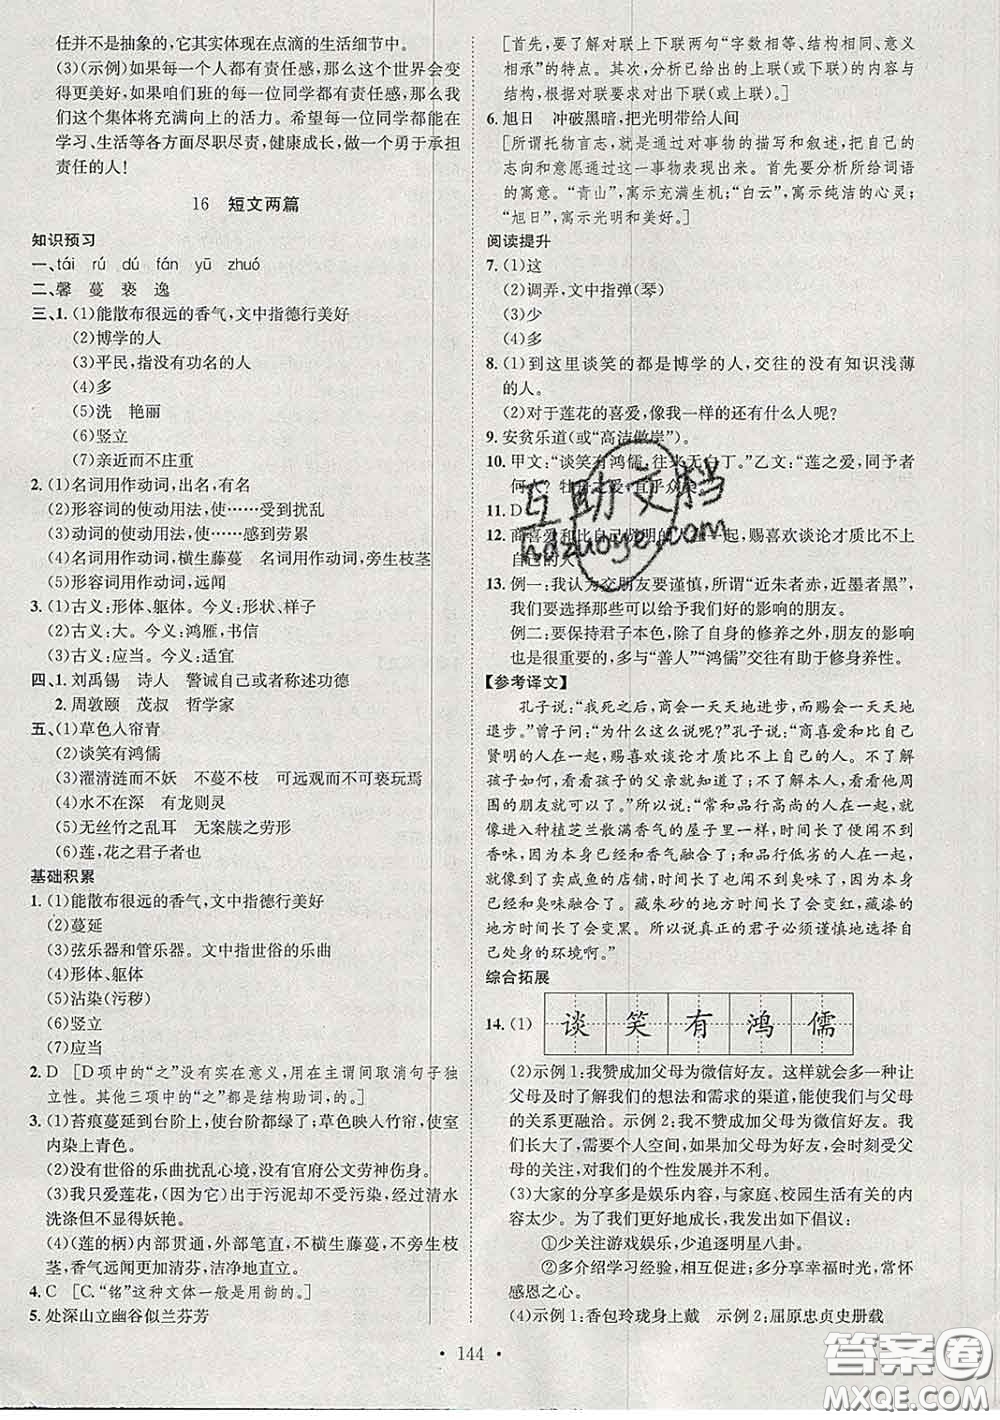 任并不是抽象的,它其实体现在点滴的生活细节中。
(3)(示例)如果每一个人都有责任感,那么这个世界会变
得更美好,如果咱们班的每一位同学都有责任感,那么我
们这个集体将充满向上的活力。希望每一位同学都能在
学习、生活等各方面尽职尽责,健康成长,做一个勇于承担
责任的人!
16 短文两篇
知识预习
一、tái rú dú fán yū zhuó
二、馨 蔓 亵 逸
三、1.(1)能散布很远的香气,文中指德行美好
(2)博学的人
(3)平民,指没有功名的人
(4)多
(5)洗 艳丽
(6)竖立
(7)亲近而不庄重
2.(1)名词用作动词,出名,有名
(2)形容词的使动用法,使……受到扰乱
(3)动词的使动用法,使……感到劳累
(4)名词用作动词,横生藤蔓 名词用作动词,旁生枝茎
(5)形容词用作动词,远闻
3.(1)古义:形体、躯体。今义:形状、样子
(2)古义:大。今义:鸿雁,书信
(3)古义:应当。今义:适宜
四、1.刘禹锡 诗人 警诫自己或者称述功德
2.周敦颐 茂叔 哲学家
五、(1)草色入帘青
(2)谈笑有鸿儒
(3)濯清涟而不妖 不蔓不枝 可远观而不可亵玩焉
(4)水不在深 有龙则灵
(5)无丝竹之乱耳 无案牍之劳形
(6)莲,花之君子者也
基础积累
1.(1)能散布很远的香气,文中指德行美好
(2)蔓延
(3)弦乐器和管乐器。文中指世俗的乐曲
(4)形体、躯体
(5)沾染(污秽)
(6)竖立
(7)应当
2.D [D项中的“之”没有实在意义,用在主谓间取消句子独
立性。其他三项中的“之”都是结构助词,的。]
3.(1)苔痕蔓延到台阶上,使台阶都绿了;草色映入竹帘,使室
内染上青色。
(2)没有世俗的乐曲扰乱心境,没有官府公文劳神伤身。
(3)我只爱莲花,(因为它)出于污泥却不受污染,经过清水
洗涤但不显得妖艳。
(4)(莲的柄)内部贯通,外部笔直,不横生藤蔓,不旁生枝
茎,香气远播更加清芬,洁净地直立。
4.C [C.“铭”这种文体一般是用韵的。]
5.处深山立幽谷似兰芬芳
[首先,要了解对联上下联两句“字数相等、结构相同、意义
相承”的特点。其次,分析已给出的上联(或下联)的内容与
结构,根据对联要求对出下联(或上联)。]
6.旭日 冲破黑暗,把光明带给人间
[所谓托物言志,就是通过对事物的描写和叙述,把自己的
志向和意愿通过这一事物表现出来。首先要分析所给词语
的寓意。“青山”,寓示充满生机;“白云”,寓示纯洁的心灵;
“旭日”,寓示光明和美好。]
阅读提升
7.(1)这
(2)调弄,文中指弹(琴)
(3)少
(4)多
8.(1)到这里谈笑的都是博学的人,交往的没有知识浅薄
的人。
(2)对于莲花的喜爱,像我一样的还有什么人呢?
9.安贫乐道(或“高洁傲岸”)。
10.甲文:“谈笑有鸿儒,往来无白丁。”乙文:“莲之爱,同予者
何人?牡丹之爱,宜乎众矣。”
11.D
12.商喜爱和比自己贤明的人在一起,赐喜欢谈论才质比不上
自己的人。
13.例一:我认为交朋友要谨慎,所谓“近朱者赤,近墨者黑”,
我们要选择那些可以给予我们好的影响的朋友。
例二:要保持君子本色,除了自身的修养之外,朋友的影响
也是很重要的,多与“善人”“鸿儒”交往有助于修身养性。
【参考译文】
孔子说:“我死之后,商会一天天地进步,而赐会一天天地
退步。”曾子问:“为什么这么说呢?”孔子说:“商喜爱和比自己
贤明的人在一起,赐喜欢谈论才质比不上自己的人。不了解
孩子如何,看看孩子的父亲就知道了;不了解本人,看看他周
围的朋友就可以了。”所以说:“常和品行高尚的人在一起,就
像进入种植芝兰散满香气的屋子里一样,时间长了便闻不到
香味,因为本身已经和香气融合了;和品行低劣的人在一起,
就像到了卖咸鱼的店铺,时间长了也闻不到臭味了,因为本身已经
和臭味融合了。藏朱砂的地方时间长了会变红,藏漆的
地方时间长了会变黑。所以说真正的君子必须谨慎地选择自
己处身的环境啊。”
综合拓展
14.(1) 谈 笑 有 鸿 儒
(2)示例1:我赞成加父母为微信好友。这样就会多一种让
父母及时了解我们的想法和需求的渠道,能让我们与父母
的关系更融洽。示例2:我不赞成加父母为微信好友。我
们长大了,需要个人空间,如果加父母为好友,会时刻受父
母的关注,对我们的个性发展并不利。
(3)大家的分享多是娱乐内容,与家庭、校园生活有关的内
容太少。为了我们更好地成长,我发出如下倡议:
①少关注游戏娱乐,少追逐明星八卦。
②多介绍学习经验,相互促进;多分享幸福时光,常怀
感恩之心。
(4)示例1:香包玲珑身上戴 示例2:屈原忠贞史册载
· 144 ·
互助文档
hdzuoye.com
答案圈
MXQE.COM